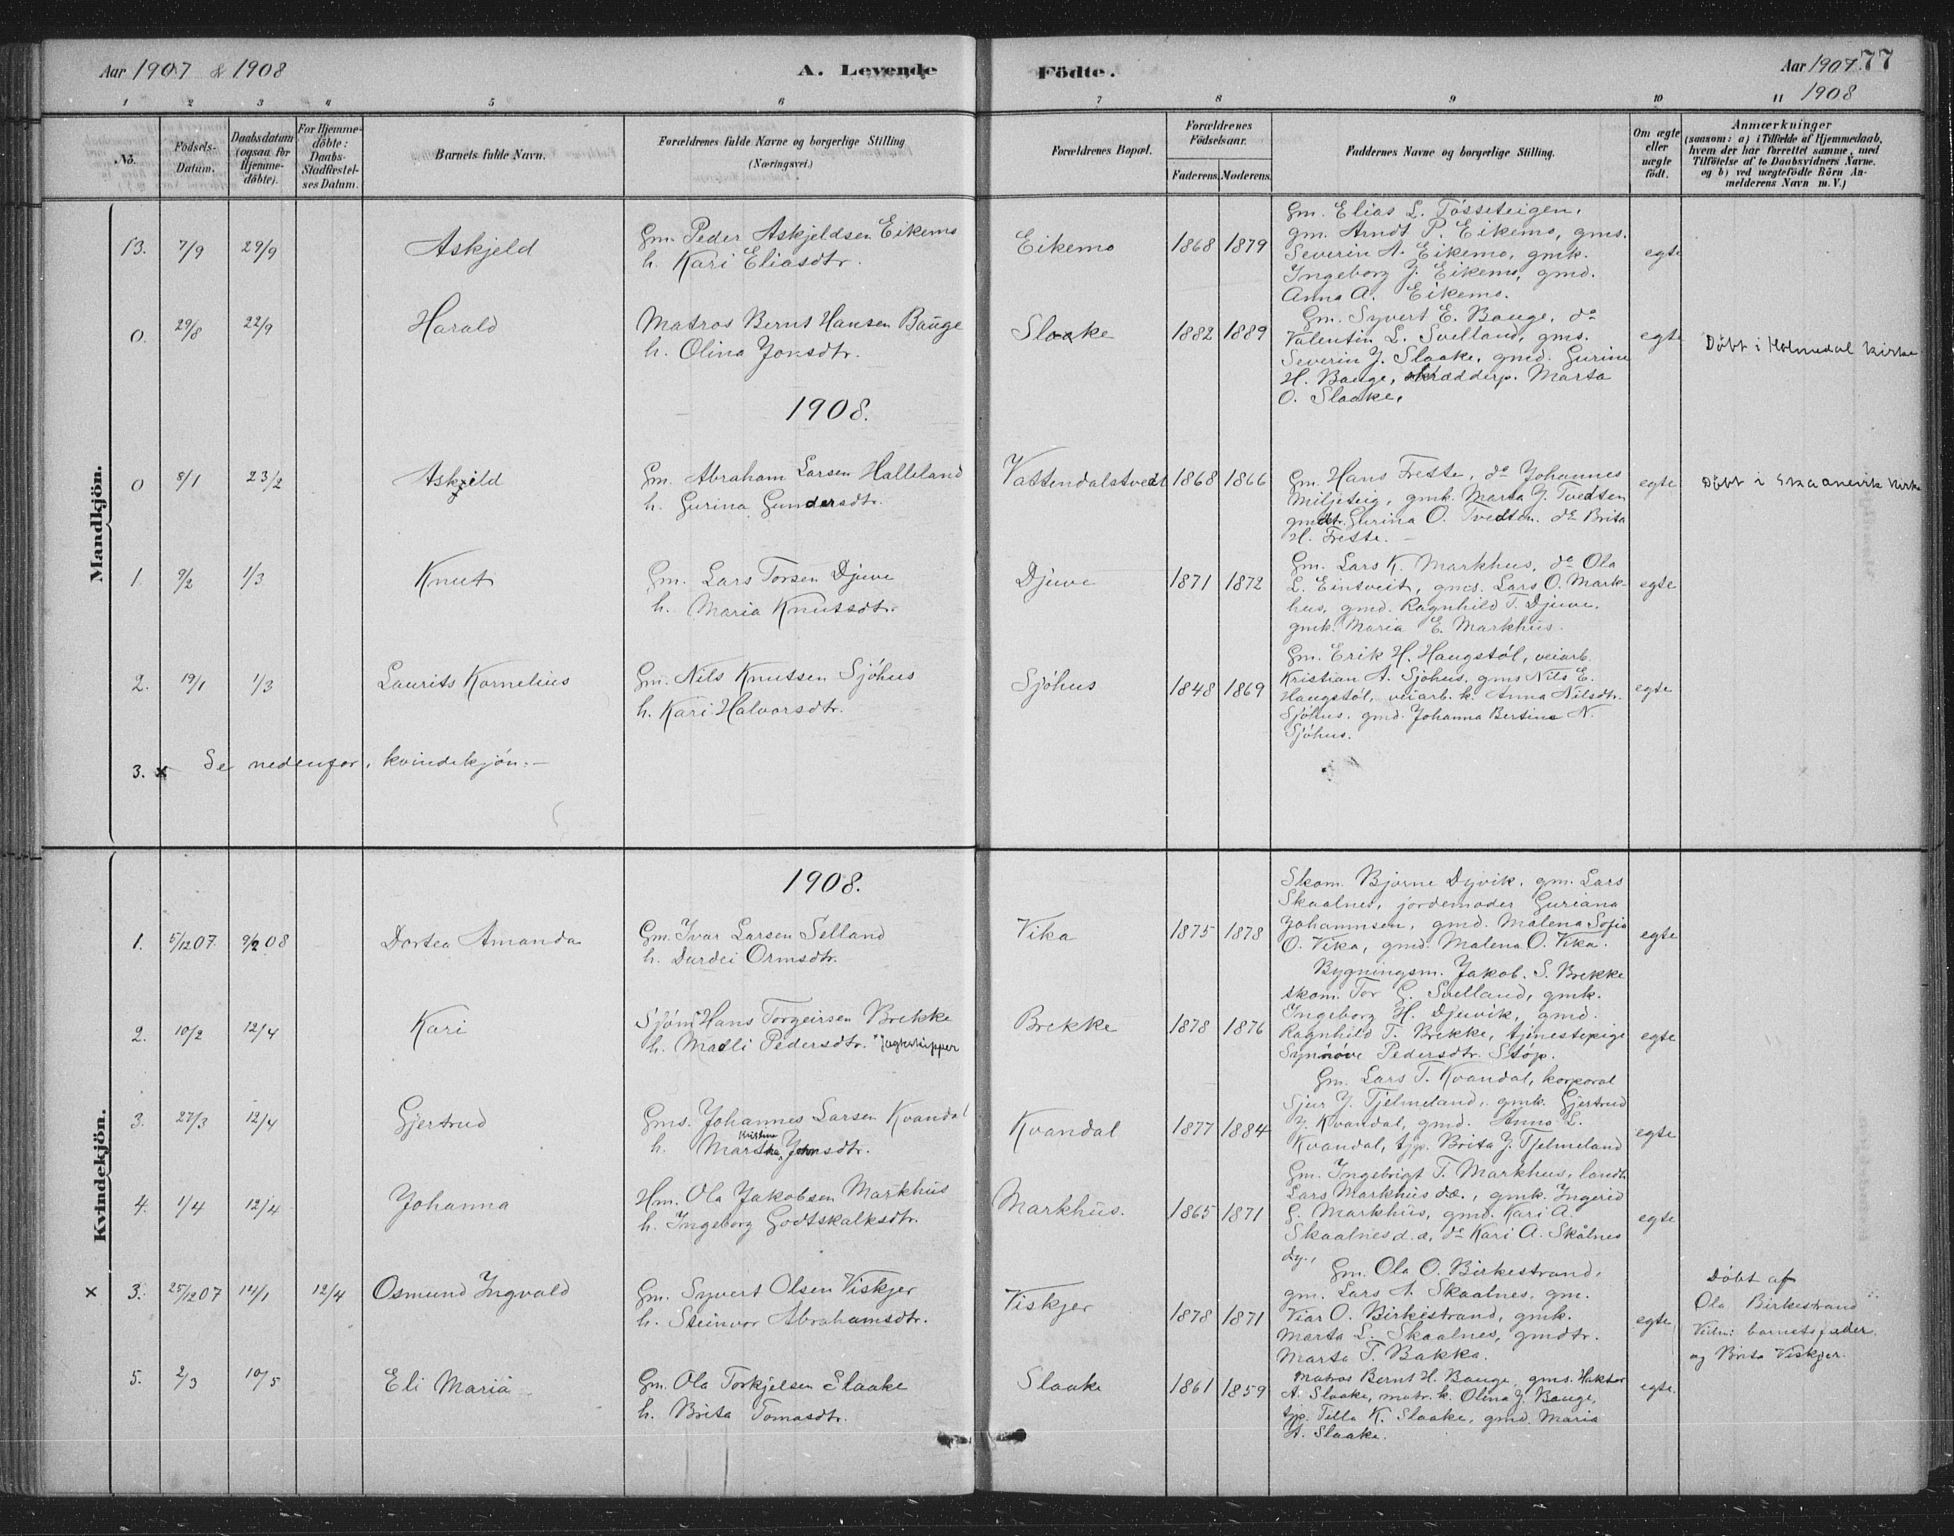 Aar 1907 & 1908
A. Levende Födte.
Aar 1907. 77
1908
1 2 3 4 5 6 7 8 9 10 11
No.
Födsels-Datum.
Daabsdatum (ogsaa for Hjemme-döbte).
For Hjemme-döbte: Daabs-Stadfæstel-ses Datum.
Barnets fulde Navn.
Forældrenes fulde Navne og borgerlige Stilling (Næringsvei.)
Forældrenes Bopæl.
Forældrenes Födselsaar.
Faderens. Moderens.
Faddernes Navne og borgerlige Stilling.
Om ægte eller uægte födt.
Anmærkninger
(saasom: a) i Tilfælde af Hjemmedaab,
hvem der har forrettet samme, med
Tilföielse af to Daabsvidners Navne.
og b) ved uægtefödte Börn An-
melderens Navn m. V.)
Mandkjön.
13. 7/9 29/9 Askjeld
Gm. Peder Askjeldsen Eikemo
h. Kari Eliasdtr.
Eikemo 1868 1879
Gm. Elias L. Tösseteigen,
gm. Arndt P. Eikemo, gms.
Severin A. Eikemo, gmk.
Ingeborg J. Eikemo, gmd.
Anna A. Eikemo.
egte
0. 29/8 22/9 Harald
Matros Bernt Hansen Bauge
h. Olina Jonsdtr.
Slaake 1882 1889
Gm. Syvert E. Bauge, do
Valentin L. Svelland, gms.
Severin J. Slaake, gmd. Gurine
H. Bauge, skrædderp. Marta
O. Slaake.
egte
Döbt i Holmedal Kirke
1908.
0 8/1 23/2 Askjeld
Gm. Abraham Larsen Halleland
h. Gurina Gundersdtr.
Vattendalstvedt 1868 1866
Gm. Hans Frette, do Johannes
Miljeteig, gmk. Marta J. Tvedten
gmdtr. Gurina O. Tvedten. do Brita
H. Frette. —
egte
Döbt i Skaanevik Kirke
1. 9/2 1/3 Knut
Gm. Lars Torsen Djuve
h. Maria Knutsdtr.
Djuve 1871 1872
Gm. Lars K. Markhus, do Ola
L. Eintveit, gms. Lars O. Mark-
hus, gmd. Ragnhild T. Djuve.
gmk. Maria E. Markhus.
egte
2. 19/1 1/3 Laurits Kornelius
Gm. Nils Knutsen Sjöhus
h. Kari Halvorsdtr.
Sjöhus 1848 1869
Gm. Erik H. Haugstöl, veiarb.
Kristian A. Sjöhus, gms Nils E.
Haugstöl, veiarb. k. Anna Nilsdtr.
Sjöhus, gmd. Johanna Bertine N.
Sjöhus.
egte
3. x Se nedenfor, kvindekjön. —
Kvindekjön.
1908.
1. 5/12 07 9/2 08 Dortea Amanda
Gm. Ivar Larsen Selland
h. Durdei Ormsdtr.
Vika 1875 1878
Skom. Bjorne Dyvik, gm. Lars
Skaalnes, jordemoder Guriana
Johannsen, gmd. Malena Sofia
O. Vika, gmd. Malena O. Vika.
egte
2. 10/2 12/4 Kari
Sjöm* Hans Torgeirsen Brekke
h. Madli Pedersdtr. *Jagteskipper
Brekke 1878 1876
Bygningsm. Jakob. S. Brekke
skom. Tor G. Svelland, gmk.
Ingeborg H. Djuvik, gmd.
Ragnhild T. Brekke, tjenestepige
Synnöve Pedersdtr. Stöp.
egte
3. 27/3 12/4 Gjertrud
Gms. Johannes Larsen Kvandal
Kristine
h. Martha Johnsdtr.
Kvandal 1877 1884
Gm. Lars T. Kvandal, korporal
Sjur J. Tjelmeland, gmk. Gjertrud
J. Kvandal, gmd. Anna L.
Kvandal, tjp. Brita J. Tjelmeland
egte
4. 1/4 12/4 Johanna
Hm. Ola Jakobsen Markhus
h. Ingeborg Godtskalksdtr.
Markhus. 1865 1871
Gm. Ingebrigt T. Markhus, landh.
Lars Markhus d.æ., gmk. Ingerid
G. Markhus, gmd. Kari A.
Skaalnes d. æ, do Kari A. Skålnes
dy.,
egte
x 3. 25/12 07 14/1 12/4 Osmund Ingvald
Gm. Syvert Olsen Viskjer
h. Steinvor Abrahamsdtr.
Viskjer 1878 1871
Gm. Ola O. Birkestrand,
gm. Lars A. Skaalnes, gm.
Viar O. Birkestrand, gmk.
Marta L. Skaalnes, gmdtr.
Marta T. Bakka.
egte
Döbt af
Ola Birkestrand
Vidn: barnets fader
og Brita Viskjer.
5. 2/3 10/5 Eli Maria
Gm. Ola Torkjelsen Slaake
h. Brita Tomasdtr.
Slaake 1861 1859
Matros Bernt H. Bauge, gms. Hektor
A. Slaake, matr. k. Olina J. Bauge,
tjp. Tilla K. Slaake, gmd. Maria
A. Slaake.
egte.